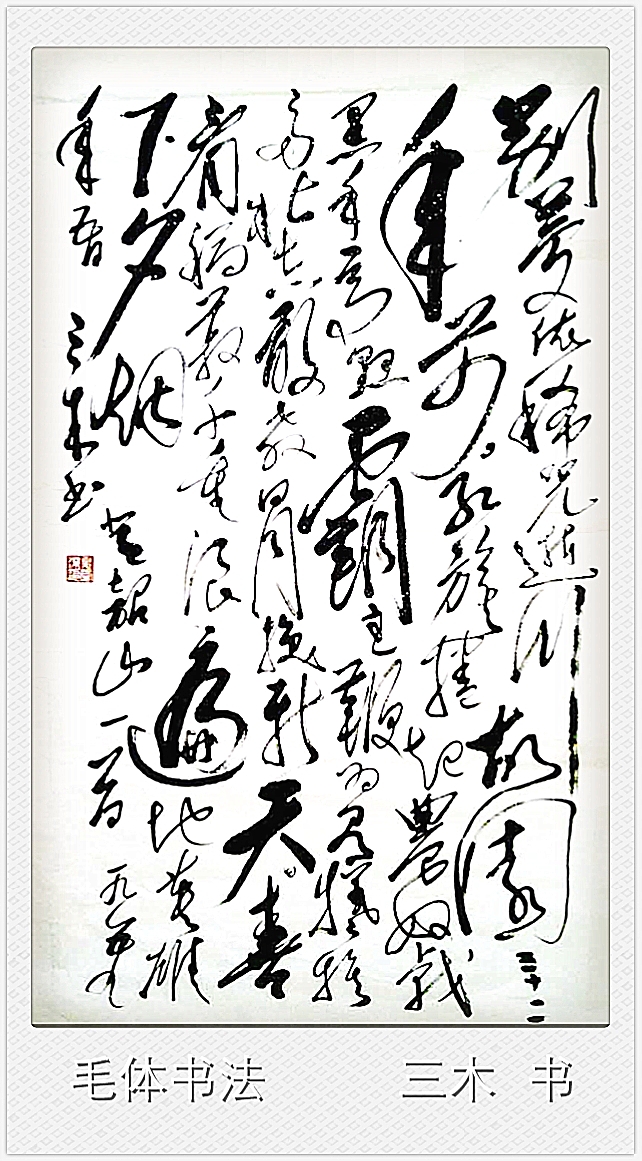 别梦依稀咒逝川故园三十二
年前红旗捲起農奴戟
黑手高悬霸主鞭为有犧牲
多壮志敢教日月换新天喜
看稻菽千重浪遍地英雄
下夕烟 韶山一首
年 三木书
毛体书法 三木 书